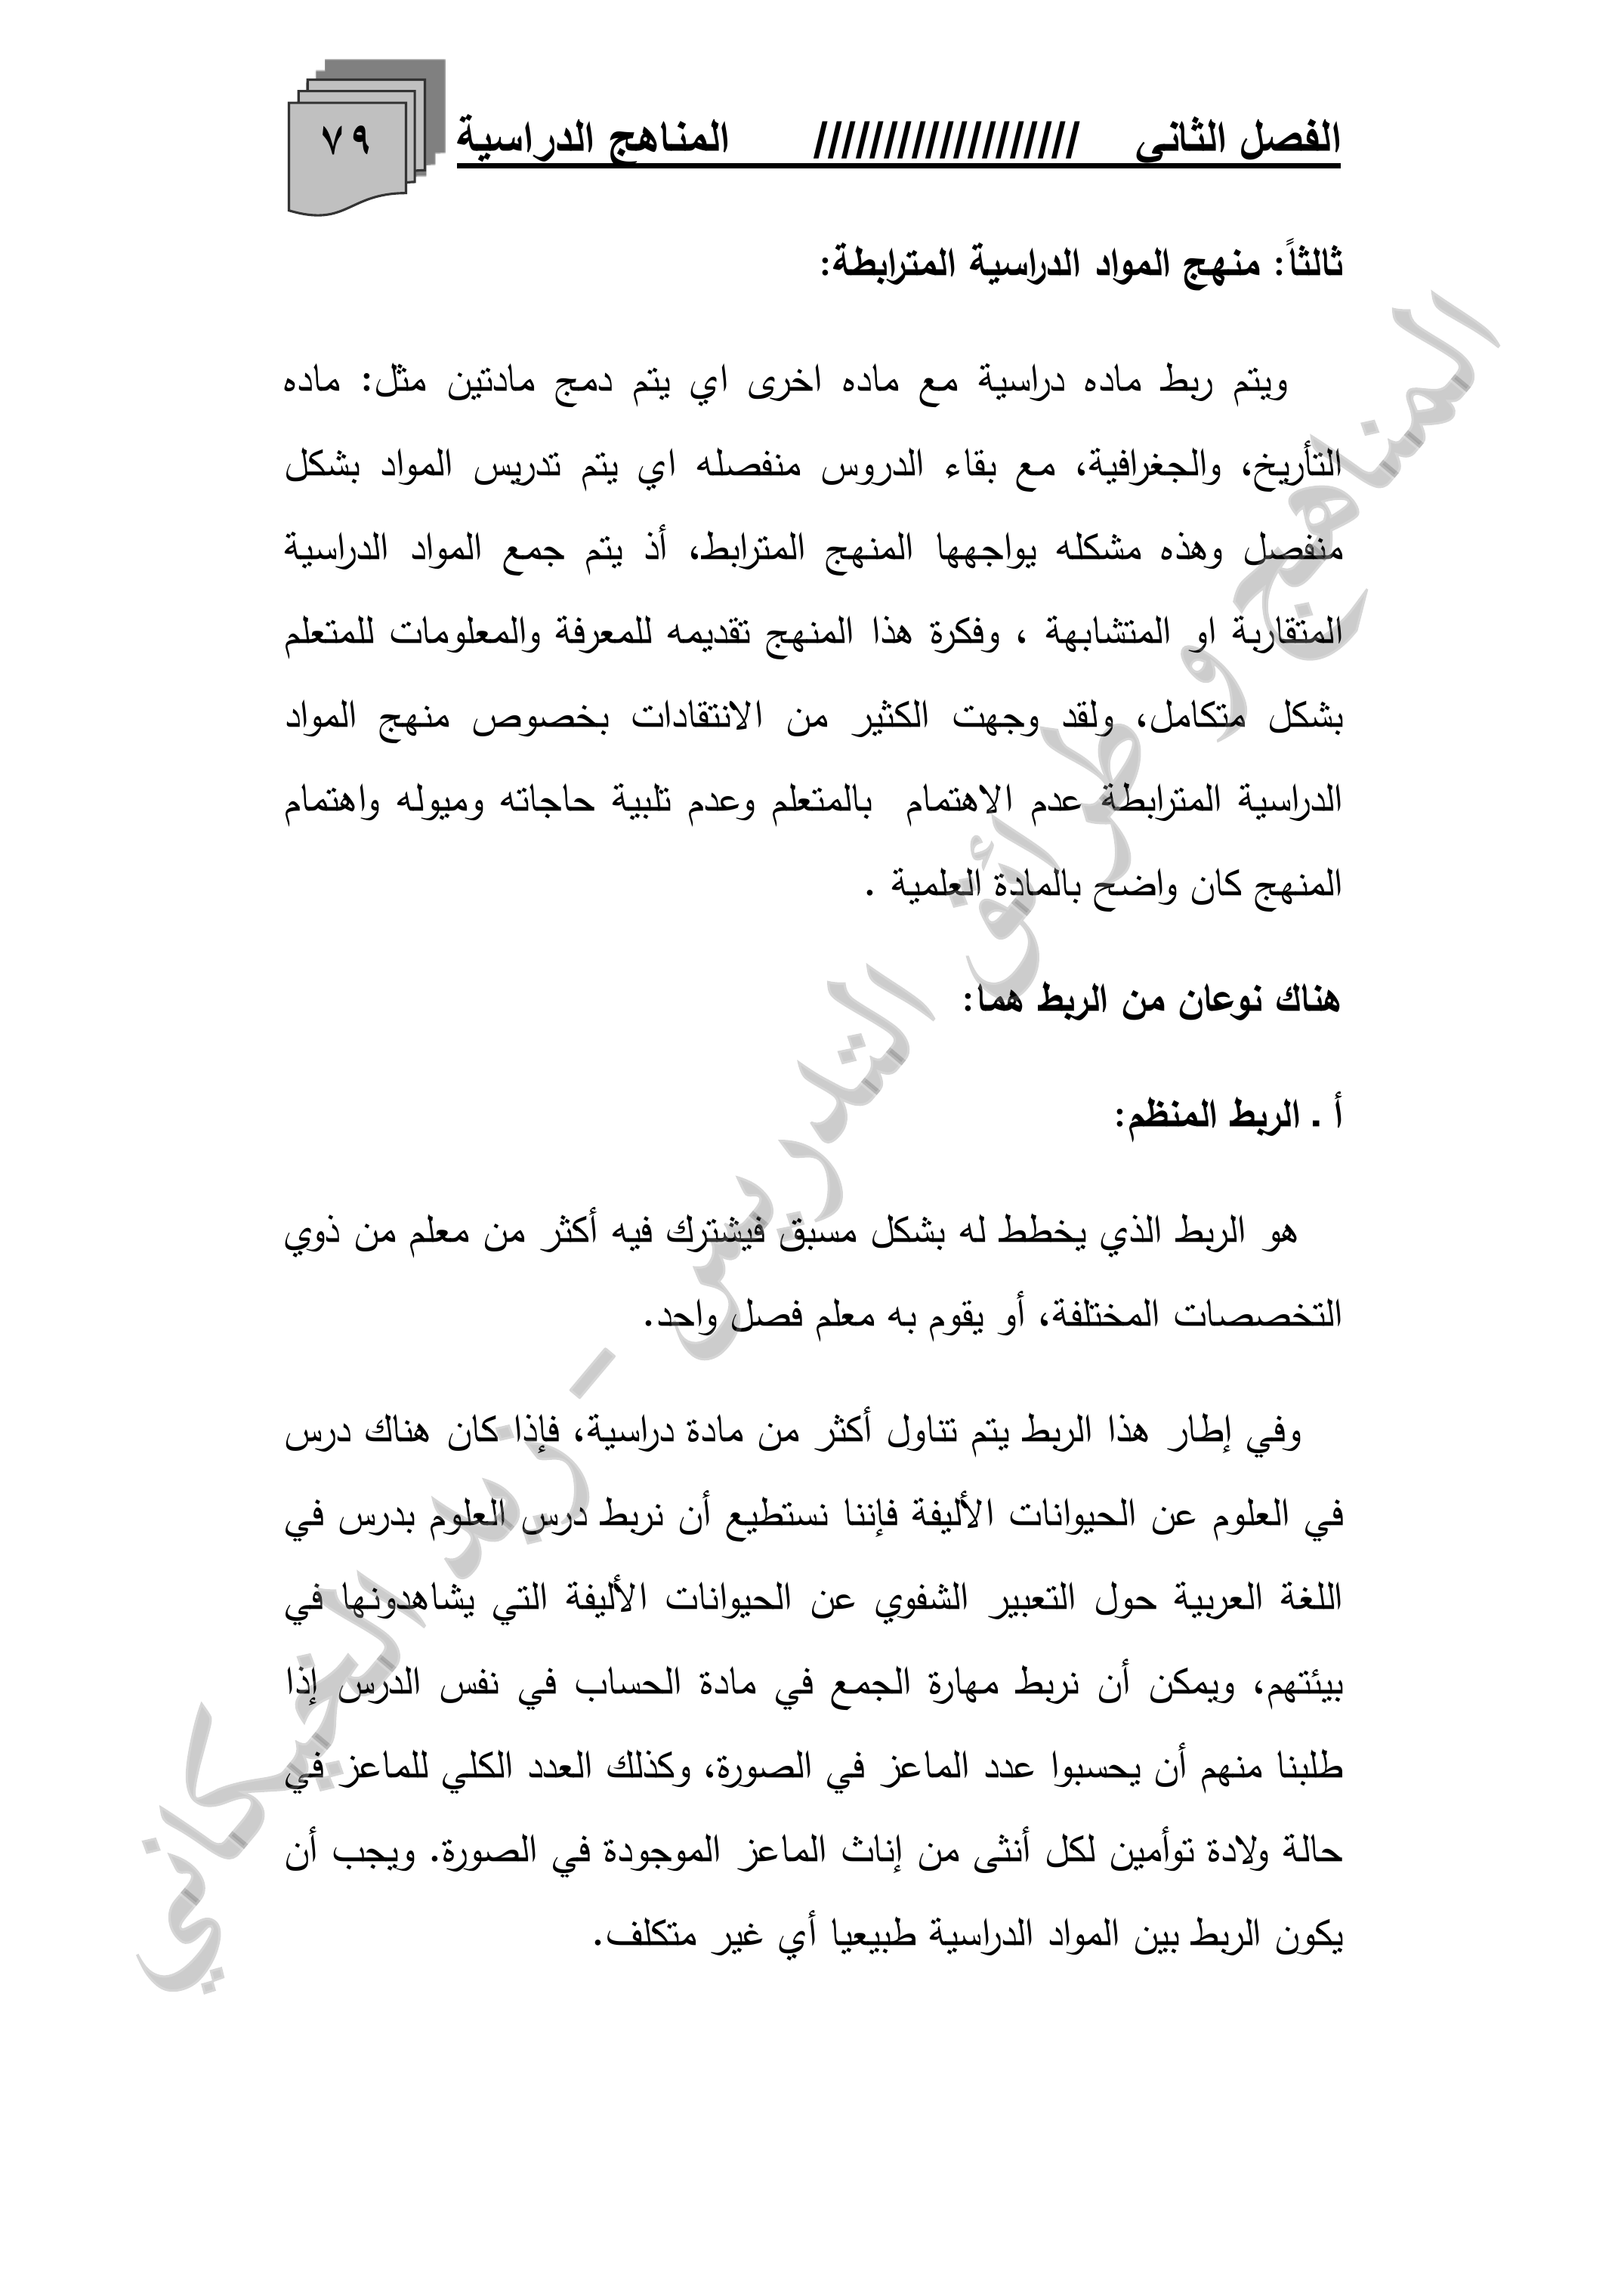 الفصل الثاني /////////////////// المناهج الدراسية ٧٩
ثالثاً: منهج المواد الدراسية المترابطة:
ويتم ربط ماده دراسية مع ماده اخرى اي يتم دمج مادتين مثل: ماده
التأريخ، والجغرافية، مع بقاء الدروس منفصله اي يتم تدريس المواد بشكل
منفصل وهذه مشكله يواجهها المنهج المترابط، أذ يتم جمع المواد الدراسية
المتقاربة او المتشابهة ، وفكرة هذا المنهج تقديمه للمعرفة والمعلومات للمتعلم
بشكل متكامل، ولقد وجهت الكثير من الانتقادات بخصوص منهج المواد
الدراسية المترابطة عدم الاهتمام بالمتعلم وعدم تلبية حاجاته وميوله واهتمام
المنهج كان واضح بالمادة العلمية .
هناك نوعان من الربط هما:
أ . الربط المنظم:
هو الربط الذي يخطط له بشكل مسبق فيشترك فيه أكثر من معلم من ذوي
التخصصات المختلفة، أو يقوم به معلم فصل واحد.
وفي إطار هذا الربط يتم تتاول أكثر من مادة دراسية، فإذا كان هناك درس
في العلوم عن الحيوانات الأليفة فإننا نستطيع أن نربط درس العلوم بدرس في
اللغة العربية حول التعبير الشفوي عن الحيوانات الأليفة التي يشاهدونها في
بيئتهم، ويمكن أن نربط مهارة الجمع في مادة الحساب في نفس الدرس إذا
طلبنا منهم أن يحسبوا عدد الماعز في الصورة، وكذلك العدد الكلي للماعز في
حالة ولادة توأمين لكل أنثى من إناث الماعز الموجودة في الصورة. ويجب أن
يكون الربط بين المواد الدراسية طبيعيا أي غير متكلف.
المناهج و طرائق التدريس - زيد الخيكاني